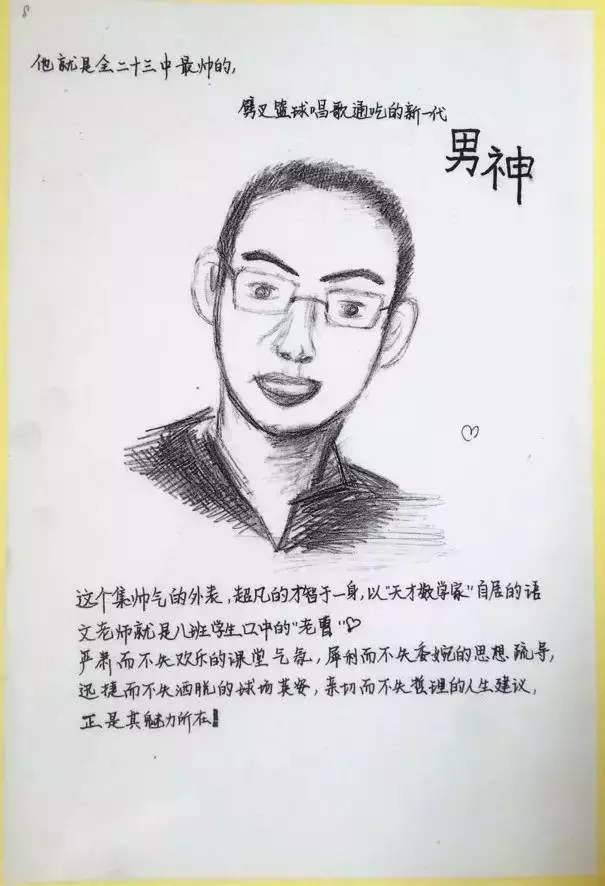 8
他就是全二十三中最帅的,
劈叉篮球唱歌通吃的新一代
男神
这个集帅气的外表,超凡的才智于一身,以"天才数学家"自居的语
文老师就是八班学生口中的"老曹"♡
严肃而不失欢乐的课堂气氛,犀利而不失委婉的思想疏导,
迅捷而不失洒脱的球场英姿,亲切而不失哲理的人生建议,
正是其魅力所在!